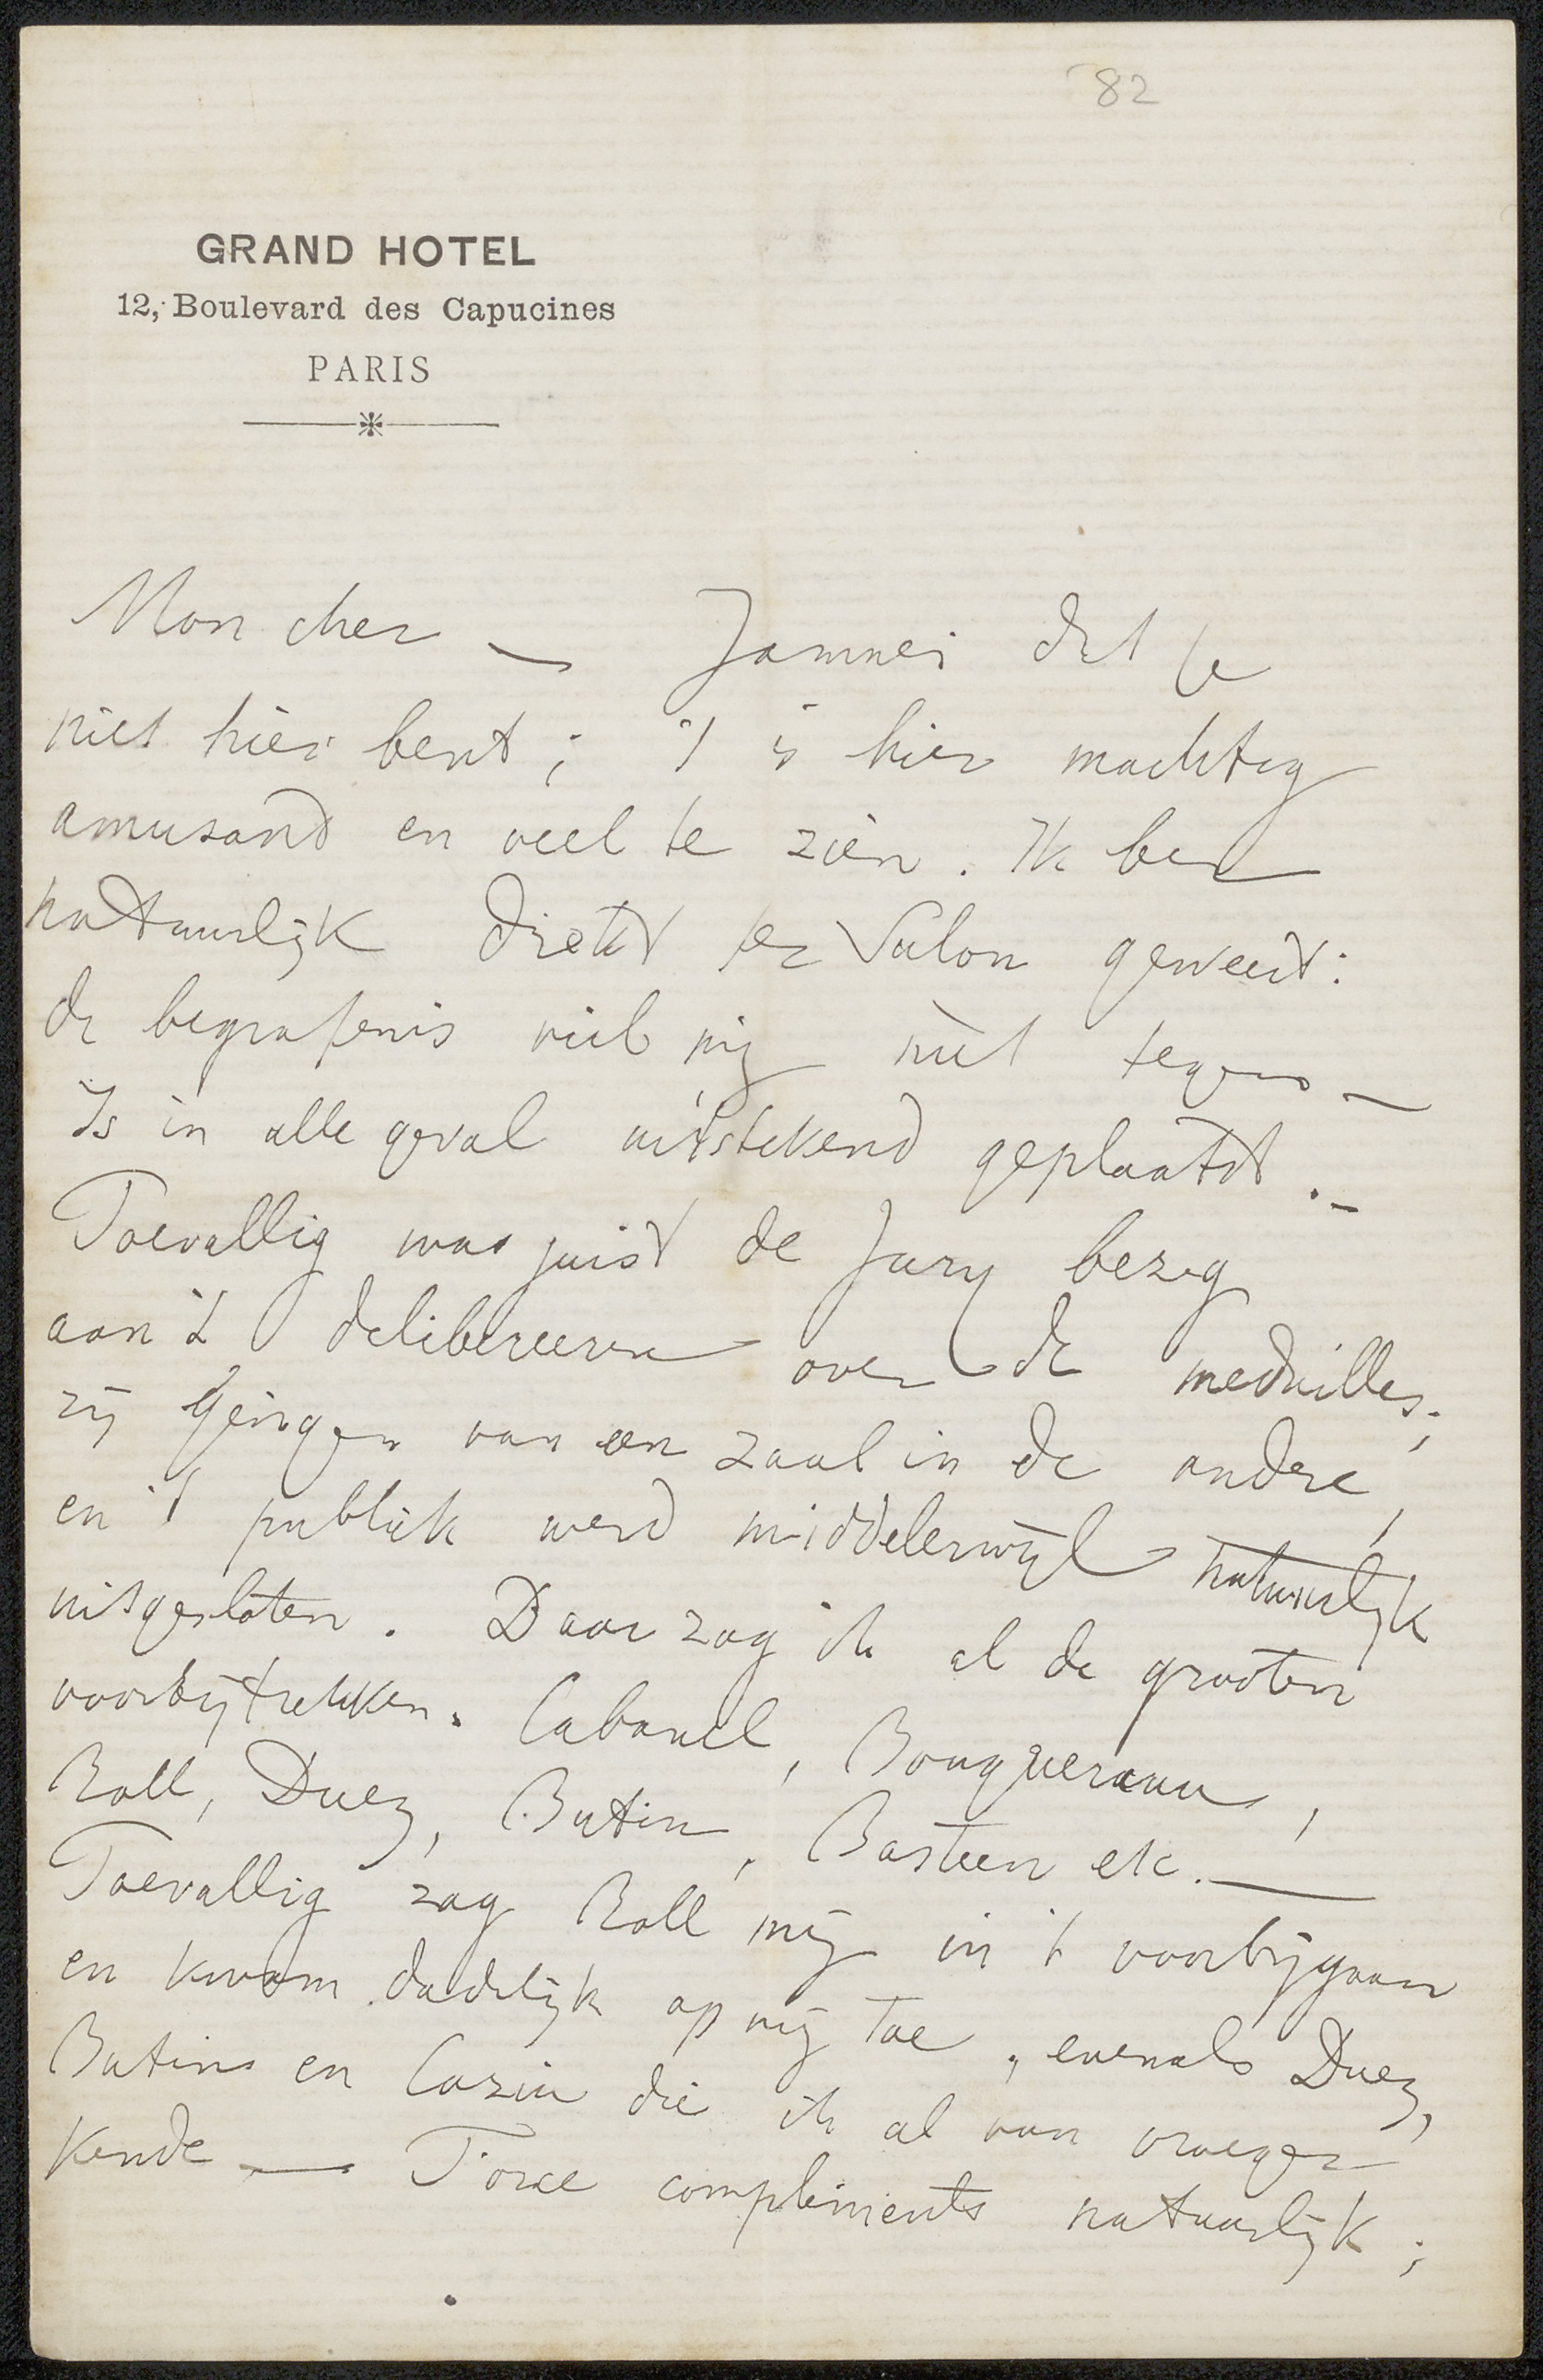 82
GRAND HOTEL
12, Boulevard des Capucines
PARIS
Mon cher — Jammer dat je
niet hier bent ; 't is hier machtig
amusand en veel te zien. Ik ben
natuurlijk direkt ter Salon geweest :
de begrafenis viel mij niet tegen —
Is in alle geval uitstekend geplaatst. —
Toevallig was juist de Jury bezig
aan 't delibereeren over de medailles ;
zij gingen van een zaal in de andre,
en 't publiek werd middelerwijl natuurlijk
uitgesloten. Daar zag ik al de grooten
voorbijtrekken. Cabanel, Bouguereau,
Roll, Duez, Butin, Bastien etc. —
Toevallig zag Roll mij in 't voorbijgaan
en kwam dadelijk op mij toe, evenals Duez,
Butin en Cazin die ik al van vroeger
kende — Force compliments natuurlijk ;